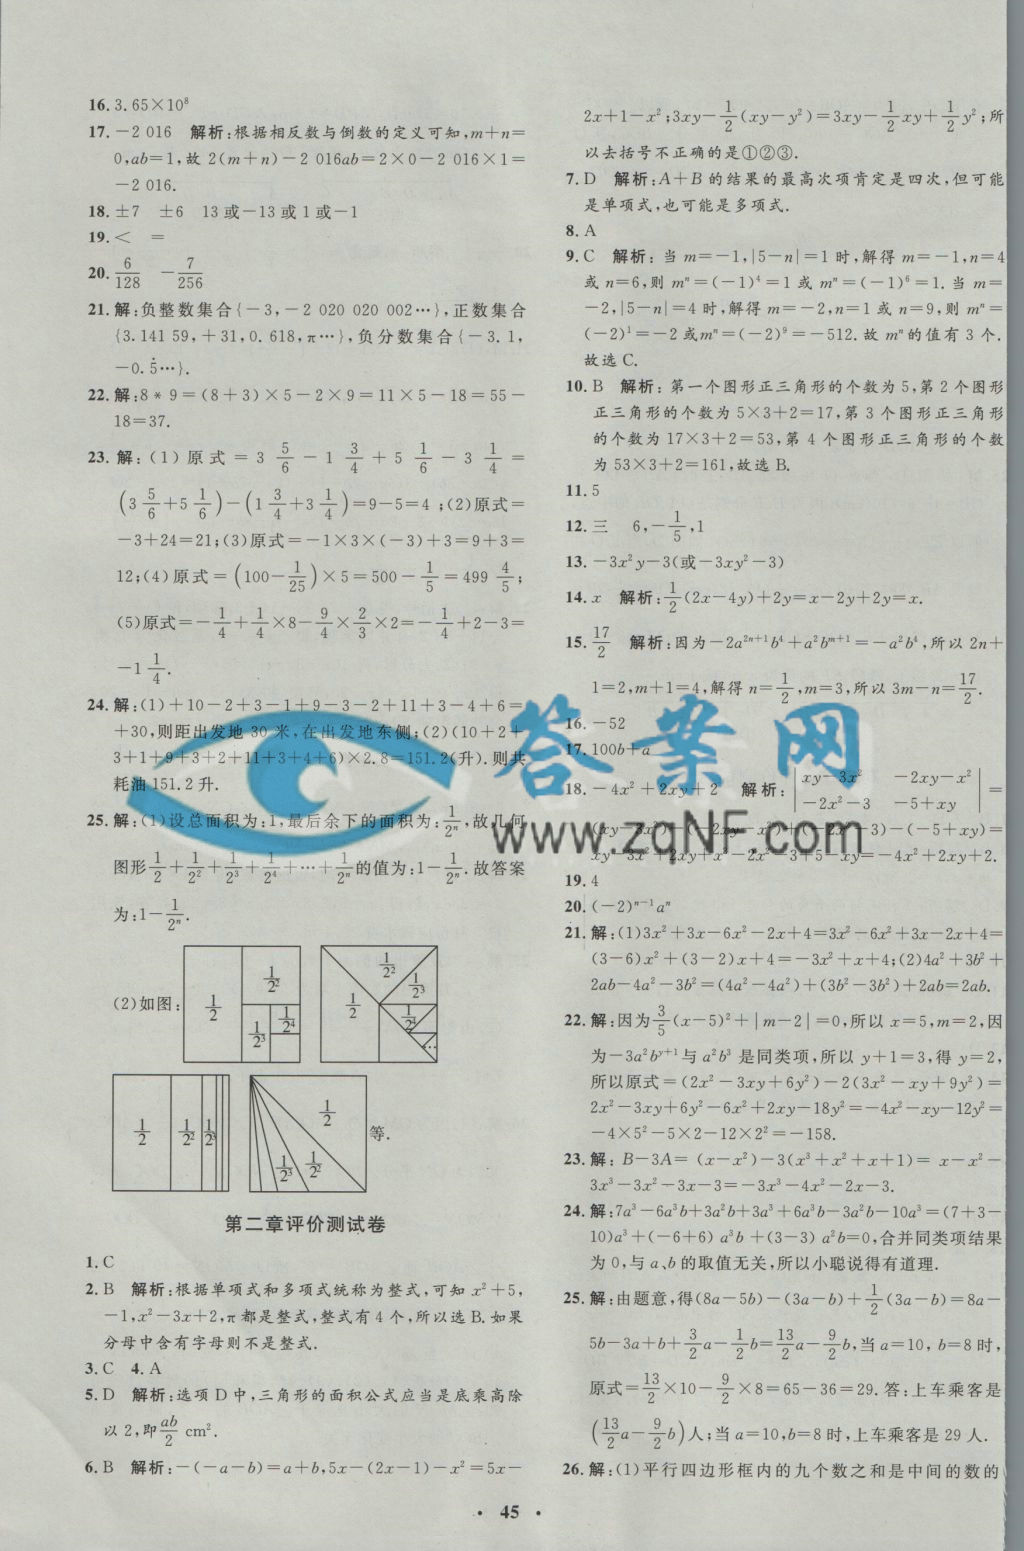 16. 3.65×10⁸
17. －2 016　解析:根据相反数与倒数的定义可知,m＋n＝
0,ab＝1,故 2(m＋n)－2 016ab＝2×0－2 016×1＝
－2 016.
18. ±7　±6　13或－13或1或－1
19. ＜　＝
20. 6/128　－7/256
21. 解:负整数集合{－3,－2 020 020 002…},正数集合
{3.141 59,＋31,0.618,π…},负分数集合{－3.1,
－0.5̇…}.
22. 解:8＊9＝(8＋3)×5－2×9＝11×5－18＝55－
18＝37.
23. 解:(1)原式＝3 5/6－1 3/4＋5 1/6－3 1/4＝
(3 5/6＋5 1/6)－(1 3/4＋3 1/4)＝9－5＝4;(2)原式＝
－3＋24＝21;(3)原式＝－1×3×(－3)＋3＝9＋3＝
12;(4)原式＝(100－1/25)×5＝500－1/5＝499 4/5;
(5)原式＝－1/4＋1/4×8－9/4×2/3×2＝－1/4＋2－3＝
－1 1/4.
24. 解:(1)＋10－2＋3－1＋9－3－2＋11＋3－4＋6＝
＋30,则距出发地30米,在出发地东侧;(2)(10＋2＋
3＋1＋9＋3＋2＋11＋3＋4＋6)×2.8＝151.2(升).则共
耗油151.2升.
25. 解:(1)设总面积为:1,最后余下的面积为:1/2ⁿ,故几何
图形1/2＋1/2²＋1/2³＋1/2⁴＋…＋1/2ⁿ的值为:1－1/2ⁿ.故答案
为:1－1/2ⁿ.
(2)如图:
1/2 1/2² 1/2³ 1/2⁴
1/2 1/2² 1/2³ 1/2⁴ …
1/2 1/2² 1/2³
1/2 1/2² 1/2³
等.
第二章评价测试卷
1. C
2. B　解析:根据单项式和多项式统称为整式,可知 x²＋5,
－1,x²－3x＋2,π都是整式,整式有4个,所以选B.如果
分母中含有字母则不是整式.
3. C　4. A
5. D　解析:选项D中,三角形的面积公式应当是底乘高除
以2,即ab/2 cm².
6. B　解析:－(－a－b)＝a＋b,5x－(2x－1)－x²＝5x－
2x＋1－x²;3xy－1/2(xy－y²)＝3xy－1/2xy＋1/2y²;所
以去括号不正确的是①②③.
7. D　解析:A＋B的结果的最高次项肯定是四次,但可能
是单项式,也可能是多项式.
8. A
9. C　解析:当 m＝－1,|5－n|＝1时,解得 m＝－1,n＝4
或 n＝6,则 mⁿ＝(－1)⁴＝1或 mⁿ＝(－1)⁶＝1.当 m＝
－2,|5－n|＝4时,解得 m＝－2,n＝1或 n＝9,则 mⁿ＝
(－2)¹＝－2或mⁿ＝(－2)⁹＝－512.故 mⁿ的值有3个.
故选C.
10. B　解析:第一个图形正三角形的个数为5,第2个图形
正三角形的个数为5×3＋2＝17,第3个图形正三角形
的个数为17×3＋2＝53,第4个图形正三角形的个数
为53×3＋2＝161,故选B.
11. 5
12. 三　6,－1/5,1
13. －3x²y－3(或－3xy²－3)
14. x　解析:1/2(2x－4y)＋2y＝x－2y＋2y＝x.
15. 17/2　解析:因为－2a²ⁿ⁺¹b⁴＋a²bᵐ⁺¹＝－a²b⁴,所以2n＋
1＝2,m＋1＝4,解得 n＝1/2,m＝3,所以3m－n＝17/2.
16. －52
17. 100b＋a
18. －4x²＋2xy＋2　解析:|xy－3x²　－2xy－x²|
|－2x²－3　－5＋xy|＝
(xy－3x²)－(－2xy－x²)＋(－2x²－3)－(－5＋xy)＝
xy－3x²＋2xy＋x²－2x²－3＋5－xy＝－4x²＋2xy＋2.
19. 4
20. (－2)ⁿ⁻¹aⁿ
21. 解:(1)3x²＋3x－6x²－2x＋4＝3x²－6x²＋3x－2x＋4＝
(3－6)x²＋(3－2)x＋4＝－3x²＋x＋4;(2)4a²＋3b²＋
2ab－4a²－3b²＝(4a²－4a²)＋(3b²－3b²)＋2ab＝2ab.
22. 解:因为3/5(x－5)²＋|m－2|＝0,所以 x＝5,m＝2,因
为－3a²bʸ⁺¹与 a²b³ 是同类项,所以 y＋1＝3,得 y＝2,
所以原式＝(2x²－3xy＋6y²)－2(3x²－xy＋9y²)＝
2x²－3xy＋6y²－6x²＋2xy－18y²＝－4x²－xy－12y²＝
－4×5²－5×2－12×2²＝－158.
23. 解: B－3A＝(x－x²)－3(x³＋x²＋x＋1)＝ x－x²－
3x³－3x²－3x－3＝－3x³－4x²－2x－3.
24. 解:7a³－6a³b＋3a²b＋3a³＋6a³b－3a²b－10a³＝(7＋3－
10)a³＋(－6＋6)a³b＋(3－3)a²b＝0,合并同类项结果
为0,与a、b的取值无关,所以小聪说得有道理.
25. 解:由题意,得(8a－5b)－(3a－b)＋1/2(3a－b)＝8a－
5b－3a＋b＋3/2a－1/2b＝13/2a－9/2b,当 a＝10,b＝8时,
原式＝13/2×10－9/2×8＝65－36＝29.答:上车乘客是
(13/2a－9/2b)人;当a＝10,b＝8时,上车乘客是29人.
26. 解:(1)平行四边形框内的九个数之和是中间的数的
· 45 ·
答案网
www.zqNF.com